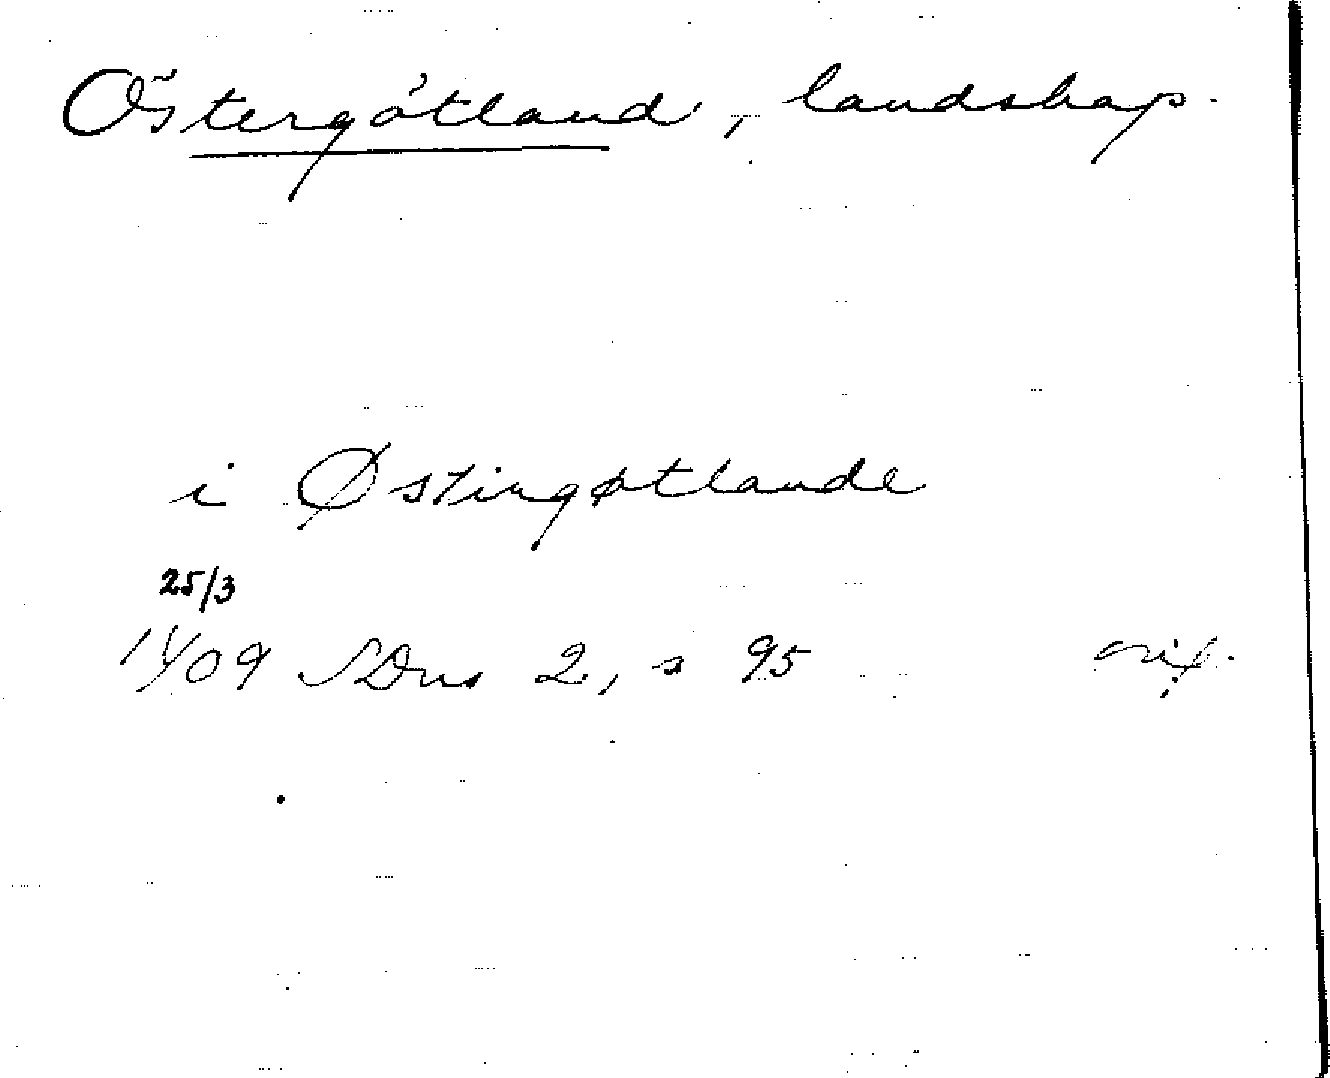 Östergötland, landskap.
i Østingøtlande
25/3
1409 SDns 2, s 95 orig.